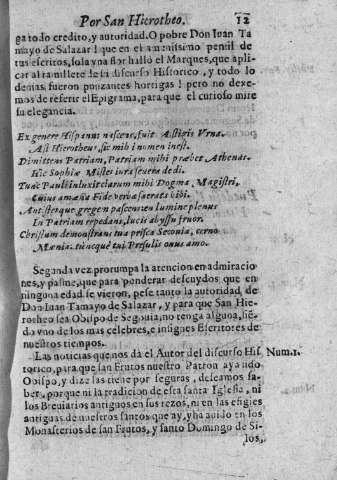 Por San Hieroteo. 12
ga todo credito, y autoridad. O pobre Don Iuan Ta
mayo de Salazar! que en el amenissimo pensil de
tus escritos, sola vna flor halló el Marques, que apli-
car al ramillete de su discurso Historico, y todo lo
demás fueron punzantes hortigas! pero no dexe-
mos de referir el Epigrama, para que el curioso mire
su elegancia.
Ex genere Hispanus nascens, fuit Astigis Vrna.
Ast Hierotheus, sic mihi nomen inest.
Dimittens Patriam, Patriam mihi præbet Athenas.
Hic Sophiæ Mister iura severa dedi.
Tunc Pauli inluxit clarum mihi Dogma Magistri,
Cuius amæna Fide verba sacrata bibi.
Antistesque gregem pascens en lumine plenus
In Patriam repedans, lucis abyssu fruor.
Christum demonstrans tua prisca Secouia, cerno
Mænia: tuncque tui Præsulis onus amo.
Segunda vez prorumpa la atencion en admiracio
nes, y pasme, que para ponderar descuydos que en
ninguna edad se vieron, pese tanto la autoridad de
Don Iuan Tamayo de Salazar, y para que San Hie-
rotheo sea Obispo de Segouia, no tenga alguna, siẽ-
do vno de los mas celebres, e insignes Escritores de
nuestros tiempos.
Las noticias que nos dà el Autor del discurso His Num. 1.
torico, para que san Frutos nuestro Patron aya sido
Obispo, y dize las tiene por seguras, deseamos sa-
ber, porque ni la tradicion de esta santa Iglesia, ni
los Breviarios antiguos en sus rezos, ni en las efigies
antiguas de nuestros santos que ay, y ha auido en los
Monasterios de san Frutos, y santo Domingo de Si-
los,